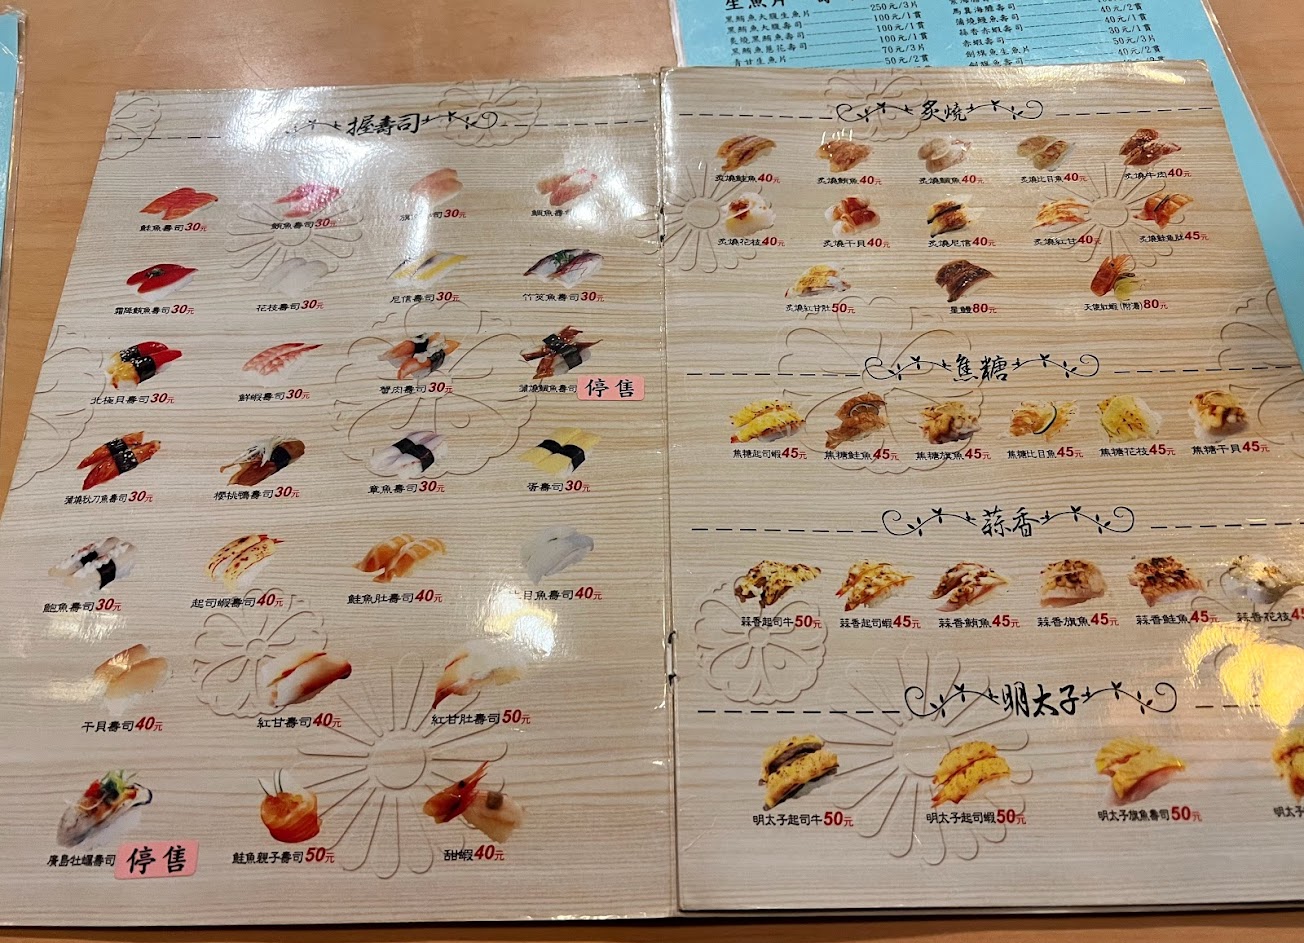 黑鮪魚大腹生魚片 250元/3片
黑鮪魚大腹壽司 100元/1貫
炙燒黑鮪魚壽司 100元/1貫
黑鮪魚蔥花壽司 70元/3片
青甘生魚片 50元/2貫
馬糞海膽壽司
蒲燒鰻魚壽司 40元/2貫
蒜香赤蝦壽司 40元/2貫
赤蝦壽司 30元/1貫
劍旗魚生魚片 50元/3片
40元/2貫
握壽司
鮭魚壽司30元
鮪魚壽司30元
壽司30元
鯛魚壽
霜降鮪魚壽司30元
花枝壽司30元
尼信壽司30元
竹筴魚壽司30元
北極貝壽司30元
鮮蝦壽司30元
蟹肉壽司30元
蒲燒鯛魚壽司 停售
蒲燒秋刀魚壽司30元
櫻桃鴨壽司30元
章魚壽司30元
蛋壽司30元
鮑魚壽司30元
起司蝦壽司40元
鮭魚肚壽司40元
目魚壽司40元
干貝壽司40元
紅甘壽司40元
紅甘肚壽司50元
廣島牡蠣壽司 停售
鮭魚親子壽司50元
甜蝦40元
炙燒
炙燒鮭魚40元
炙燒鮪魚40元
炙燒鯛魚40元
炙燒比目魚40元
炙燒牛肉40元
炙燒花枝40元
炙燒干貝40元
炙燒尼信40元
炙燒紅甘40元
炙燒鮭魚肚45元
炙燒紅甘肚50元
星鰻80元
天使紅蝦(附湯)80元
焦糖
焦糖起司蝦45元
焦糖鮭魚45元
焦糖旗魚45元
焦糖比目魚45元
焦糖花枝45元
焦糖干貝45元
蒜香
蒜香起司牛50元
蒜香起司蝦45元
蒜香鮪魚45元
蒜香旗魚45元
蒜香鮭魚45元
蒜香花枝45
明太子
明太子起司牛50元
明太子起司蝦50元
明太子旗魚壽司50元
明太子